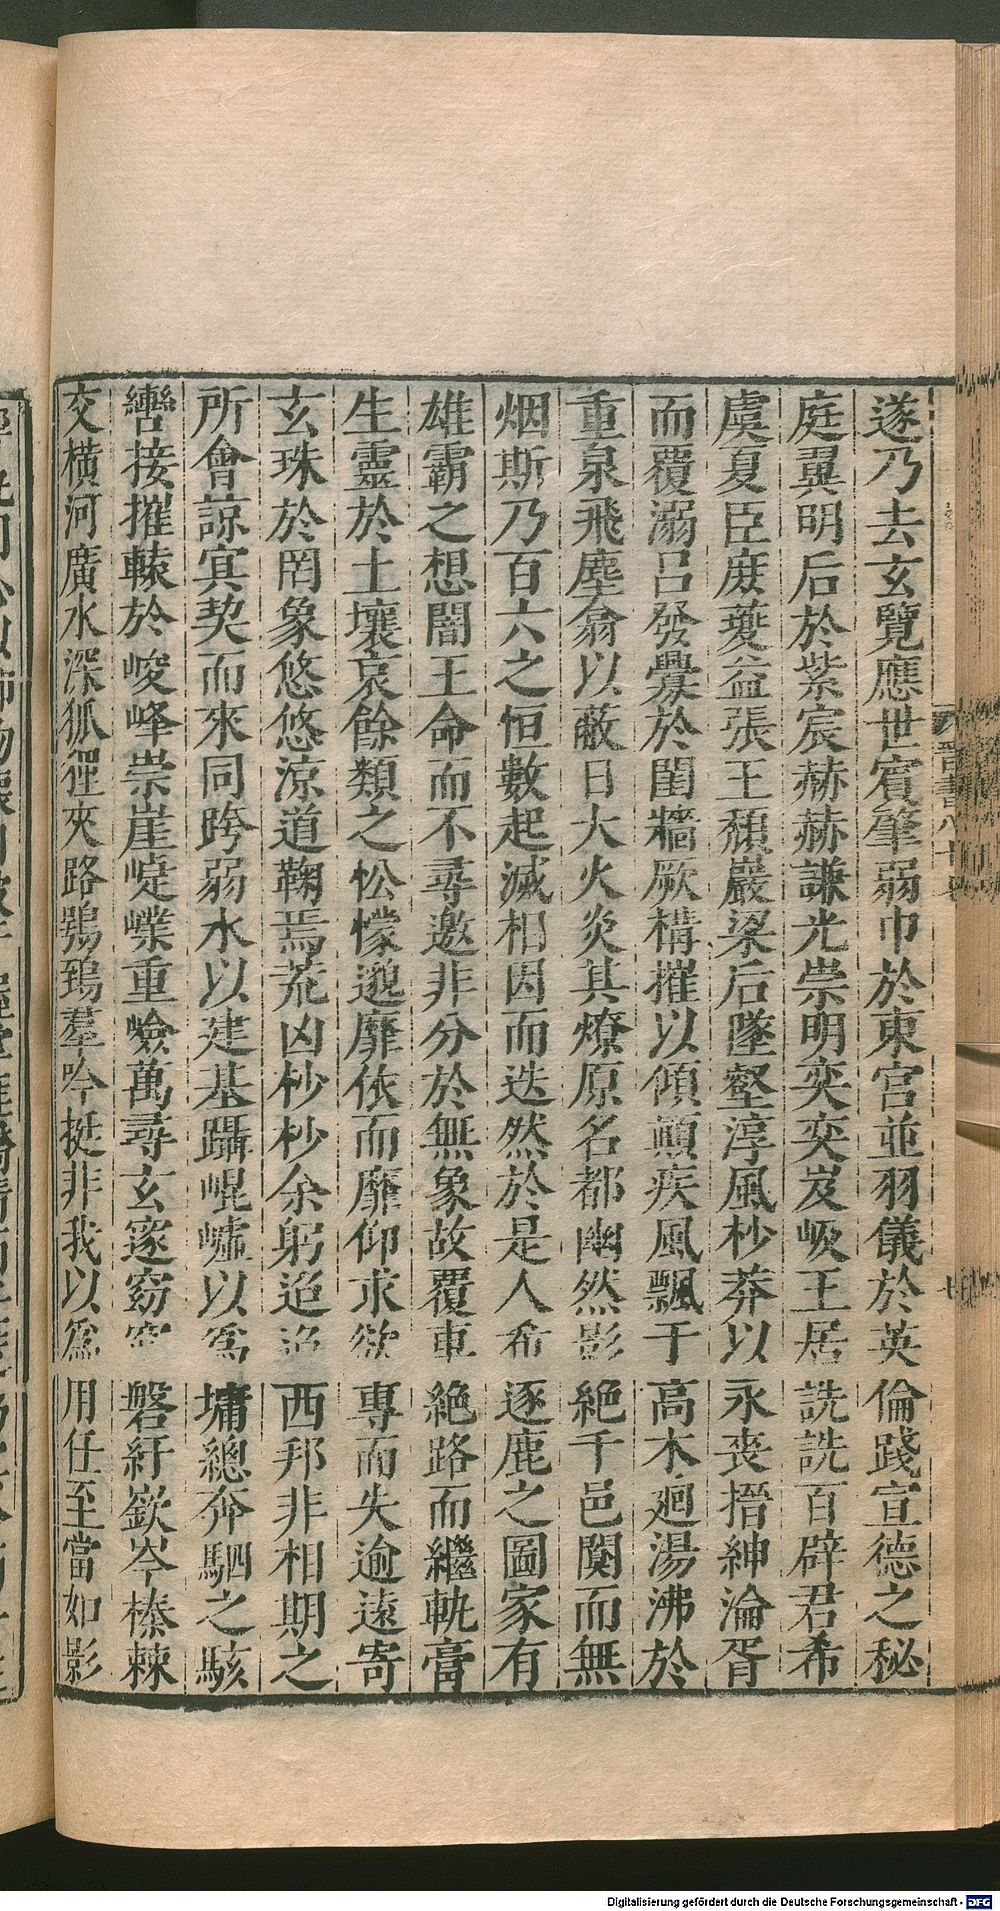 遂乃去玄覽應世賓肇弱巾於東宮並羽儀於英倫踐宣德之秘
庭翼明后於紫宸赫赫謙光崇明奕奕岌岌王居詵詵百辟君希
虞夏臣庶夔益張王頹巖梁后墜壑淳風杪莽以永喪搢紳淪胥
而覆溺呂發釁於閨牆厥構摧以傾顛疾風飄于高木廻湯沸於
重泉飛塵翕以蔽日大火炎其燎原名都幽然影絕千邑闃而無
烟斯乃百六之恒數起滅相因而迭然於是人希逐鹿之圖家有
雄霸之想闇王命而不尋邀非分於無象故覆車絕路而繼軌膏
生靈於土壤哀餘類之忪懞邈靡依而靡仰求欲專而失逾遠寄
玄珠於罔象悠悠涼道鞠焉荒凶杪杪余躬迢迢西邦非相期之
所會諒冥契而來同跨弱水以建基躡崐嶟以爲墉總奔駟之駭
轡接摧轅於峻峰崇崖崨嶫重嶮萬尋玄邃窈窕磐紆嶔岑榛棘
交橫河廣水深狐狸夾路鴞鵄羣吟挺非我以爲用任至當如影
晋書八十七
七
Digitalisierung gefördert durch die Deutsche Forschungsgemeinschaft - DFG